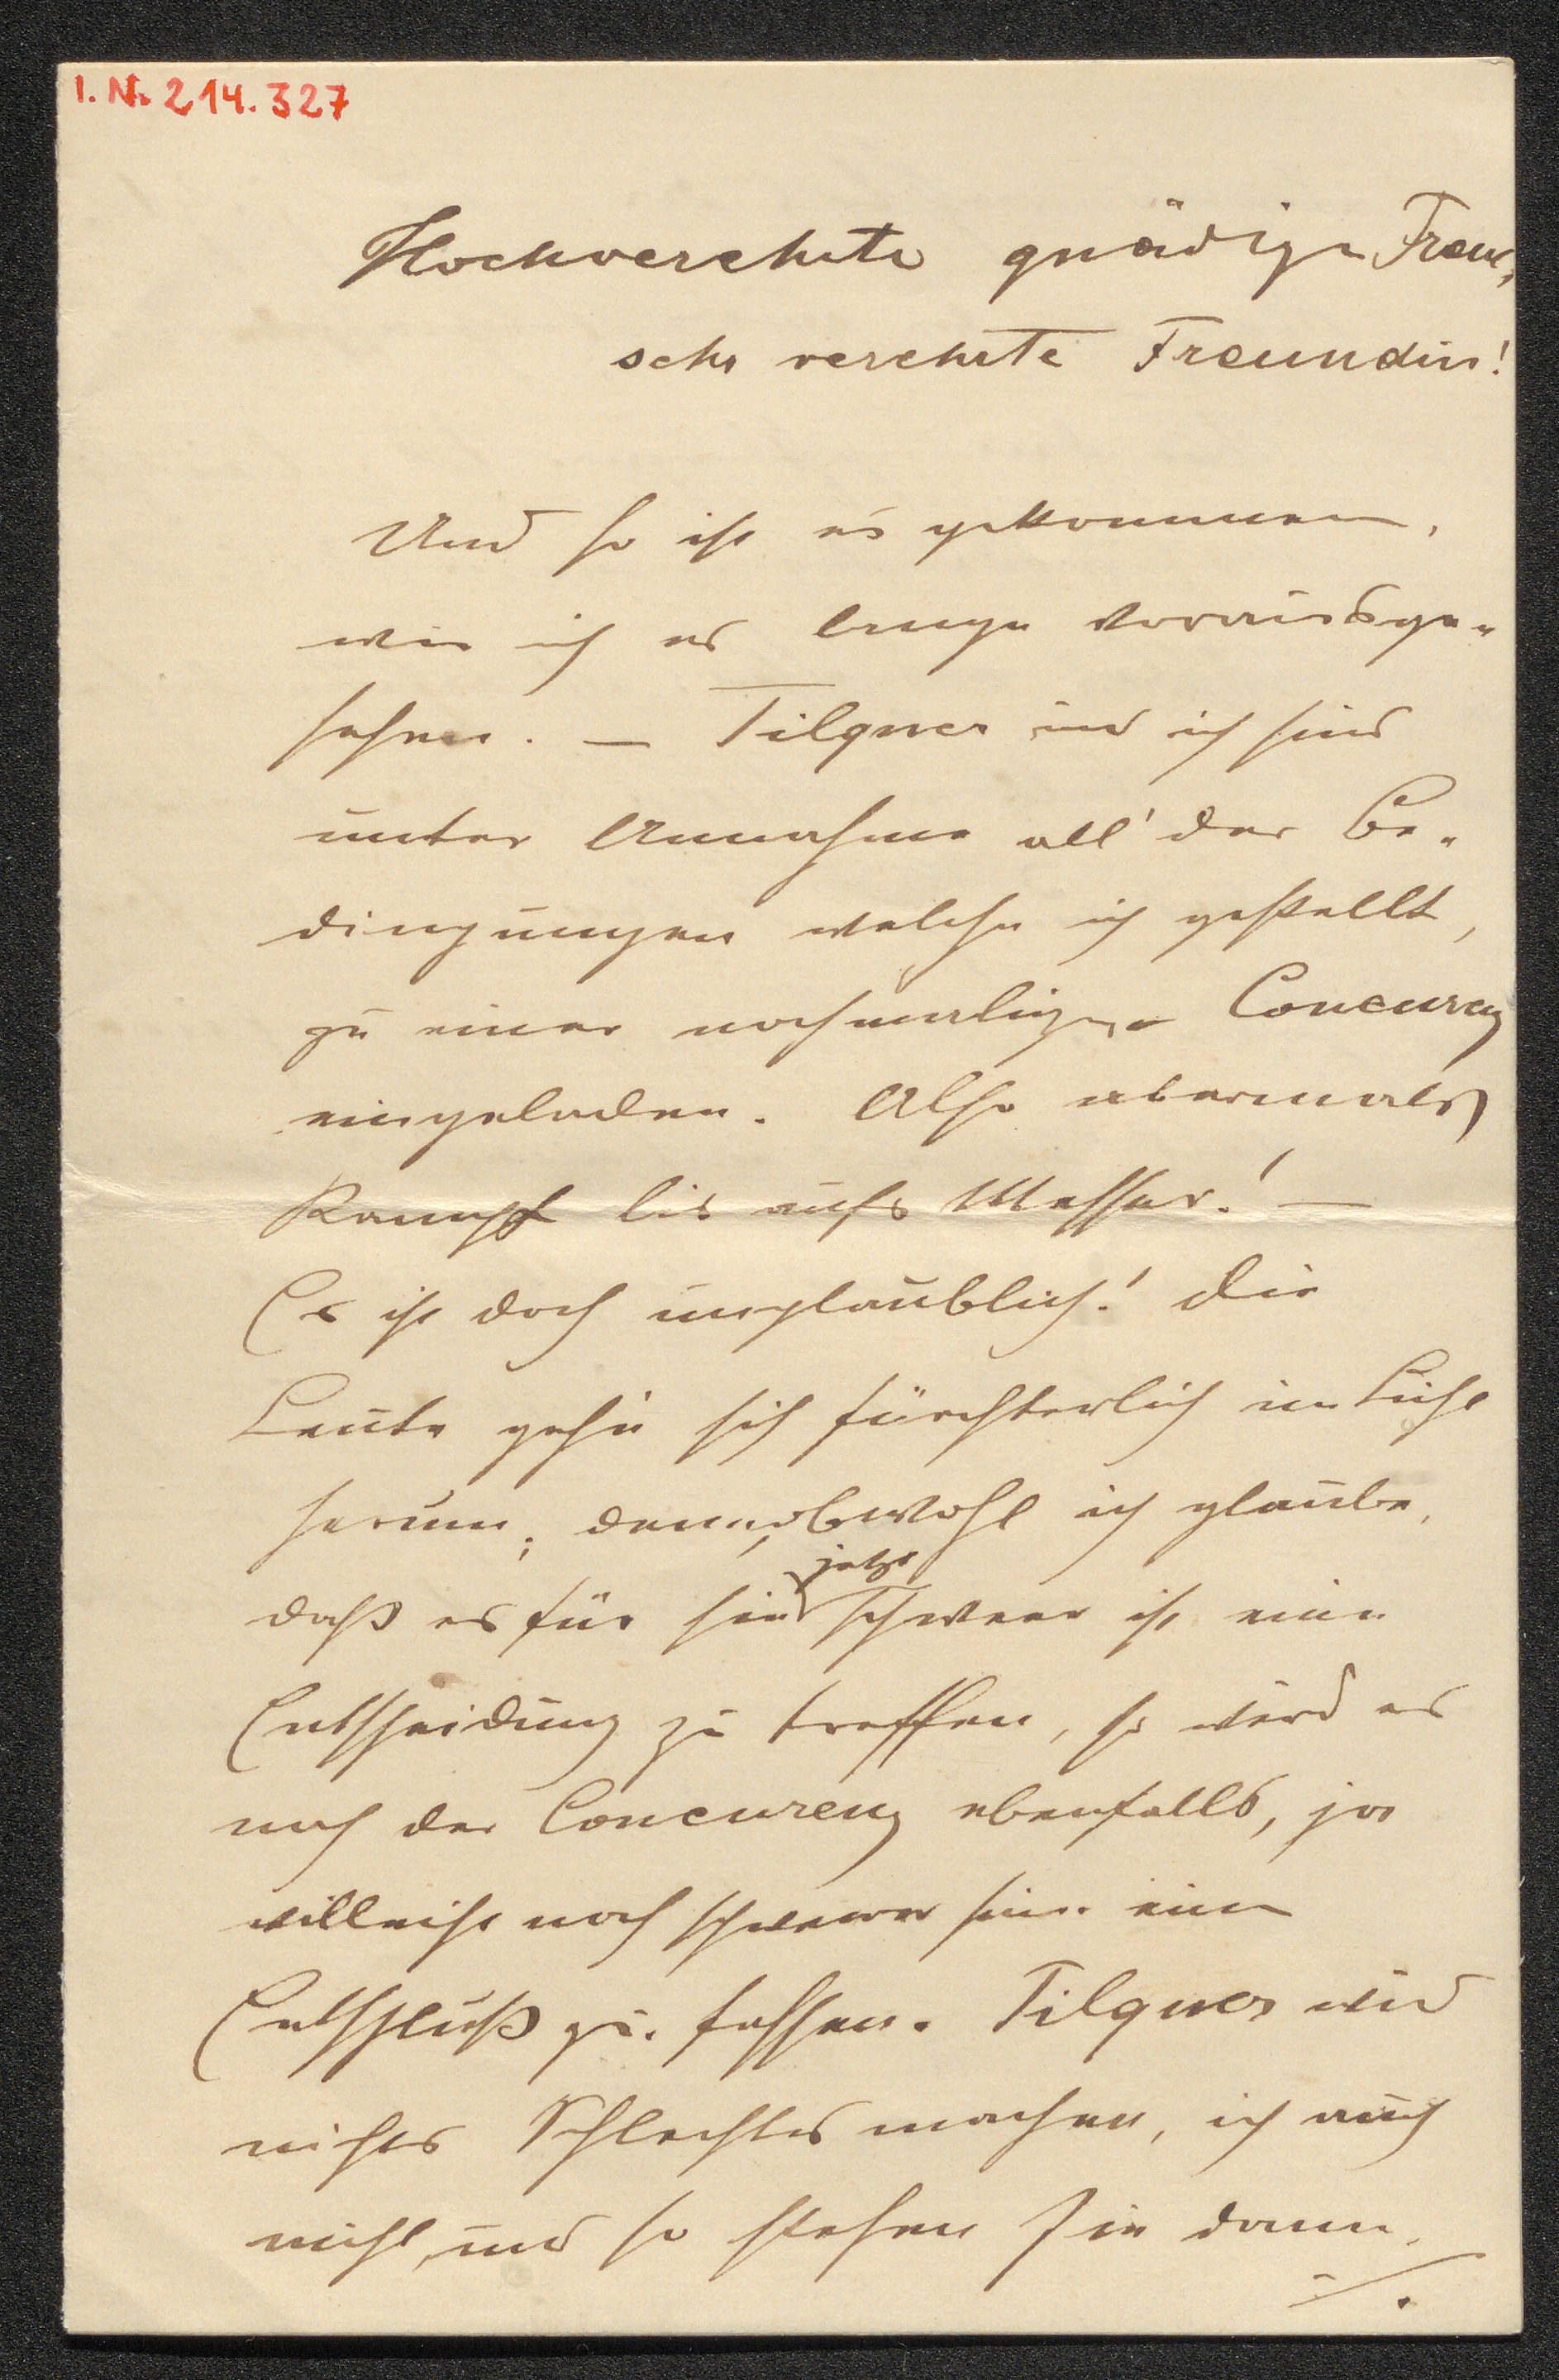 I. N. 214.327
Hochverehrte gnädige Frau,
sehr verehrte Freundin!
Und so ist es gekommen,
wie ich es lange vorausge-
sehen. — Tilgner und ich sind
unter Annahme all' der Be-
dingungen welche ich gestellt,
zu einer nochmaligen Concurenz
eingeladen. Also abermals
Kampf bis aufs Messer! —
Es ist doch unglaublich! Die
Leute gehn sich fürchterlich im Licht
herum; denn, obwohl ich glaube,
daß es für sie jetzt schwer ist eine
Entscheidung zu treffen, so wird es
nach der Concurenz ebenfalls, ja
villeicht noch schwerer sein einen
Entschluß zu fassen. Tilgner wird
nichts Schlechtes machen, ich auch
nicht, und so stehen sie dann
./.